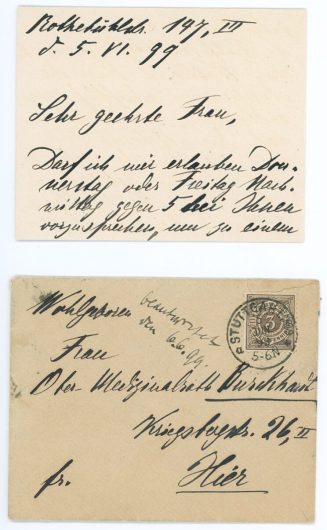 Rothebühlstr. 147, III
d. 5. VI. 99
Sehr geehrte Frau,
Darf ich mir erlauben Don-
nerstag oder Freitag Nach-
mittag gegen 5 bei Ihnen
vorzusprechen, um zu einem
Wohlgeboren
beantwortet
den 6.6.99.
Frau
STUTTGART
3
5-6N
Ober Medizinalrath Burckhardt
Kriegsbergstr. 26, II
fr.
Hier